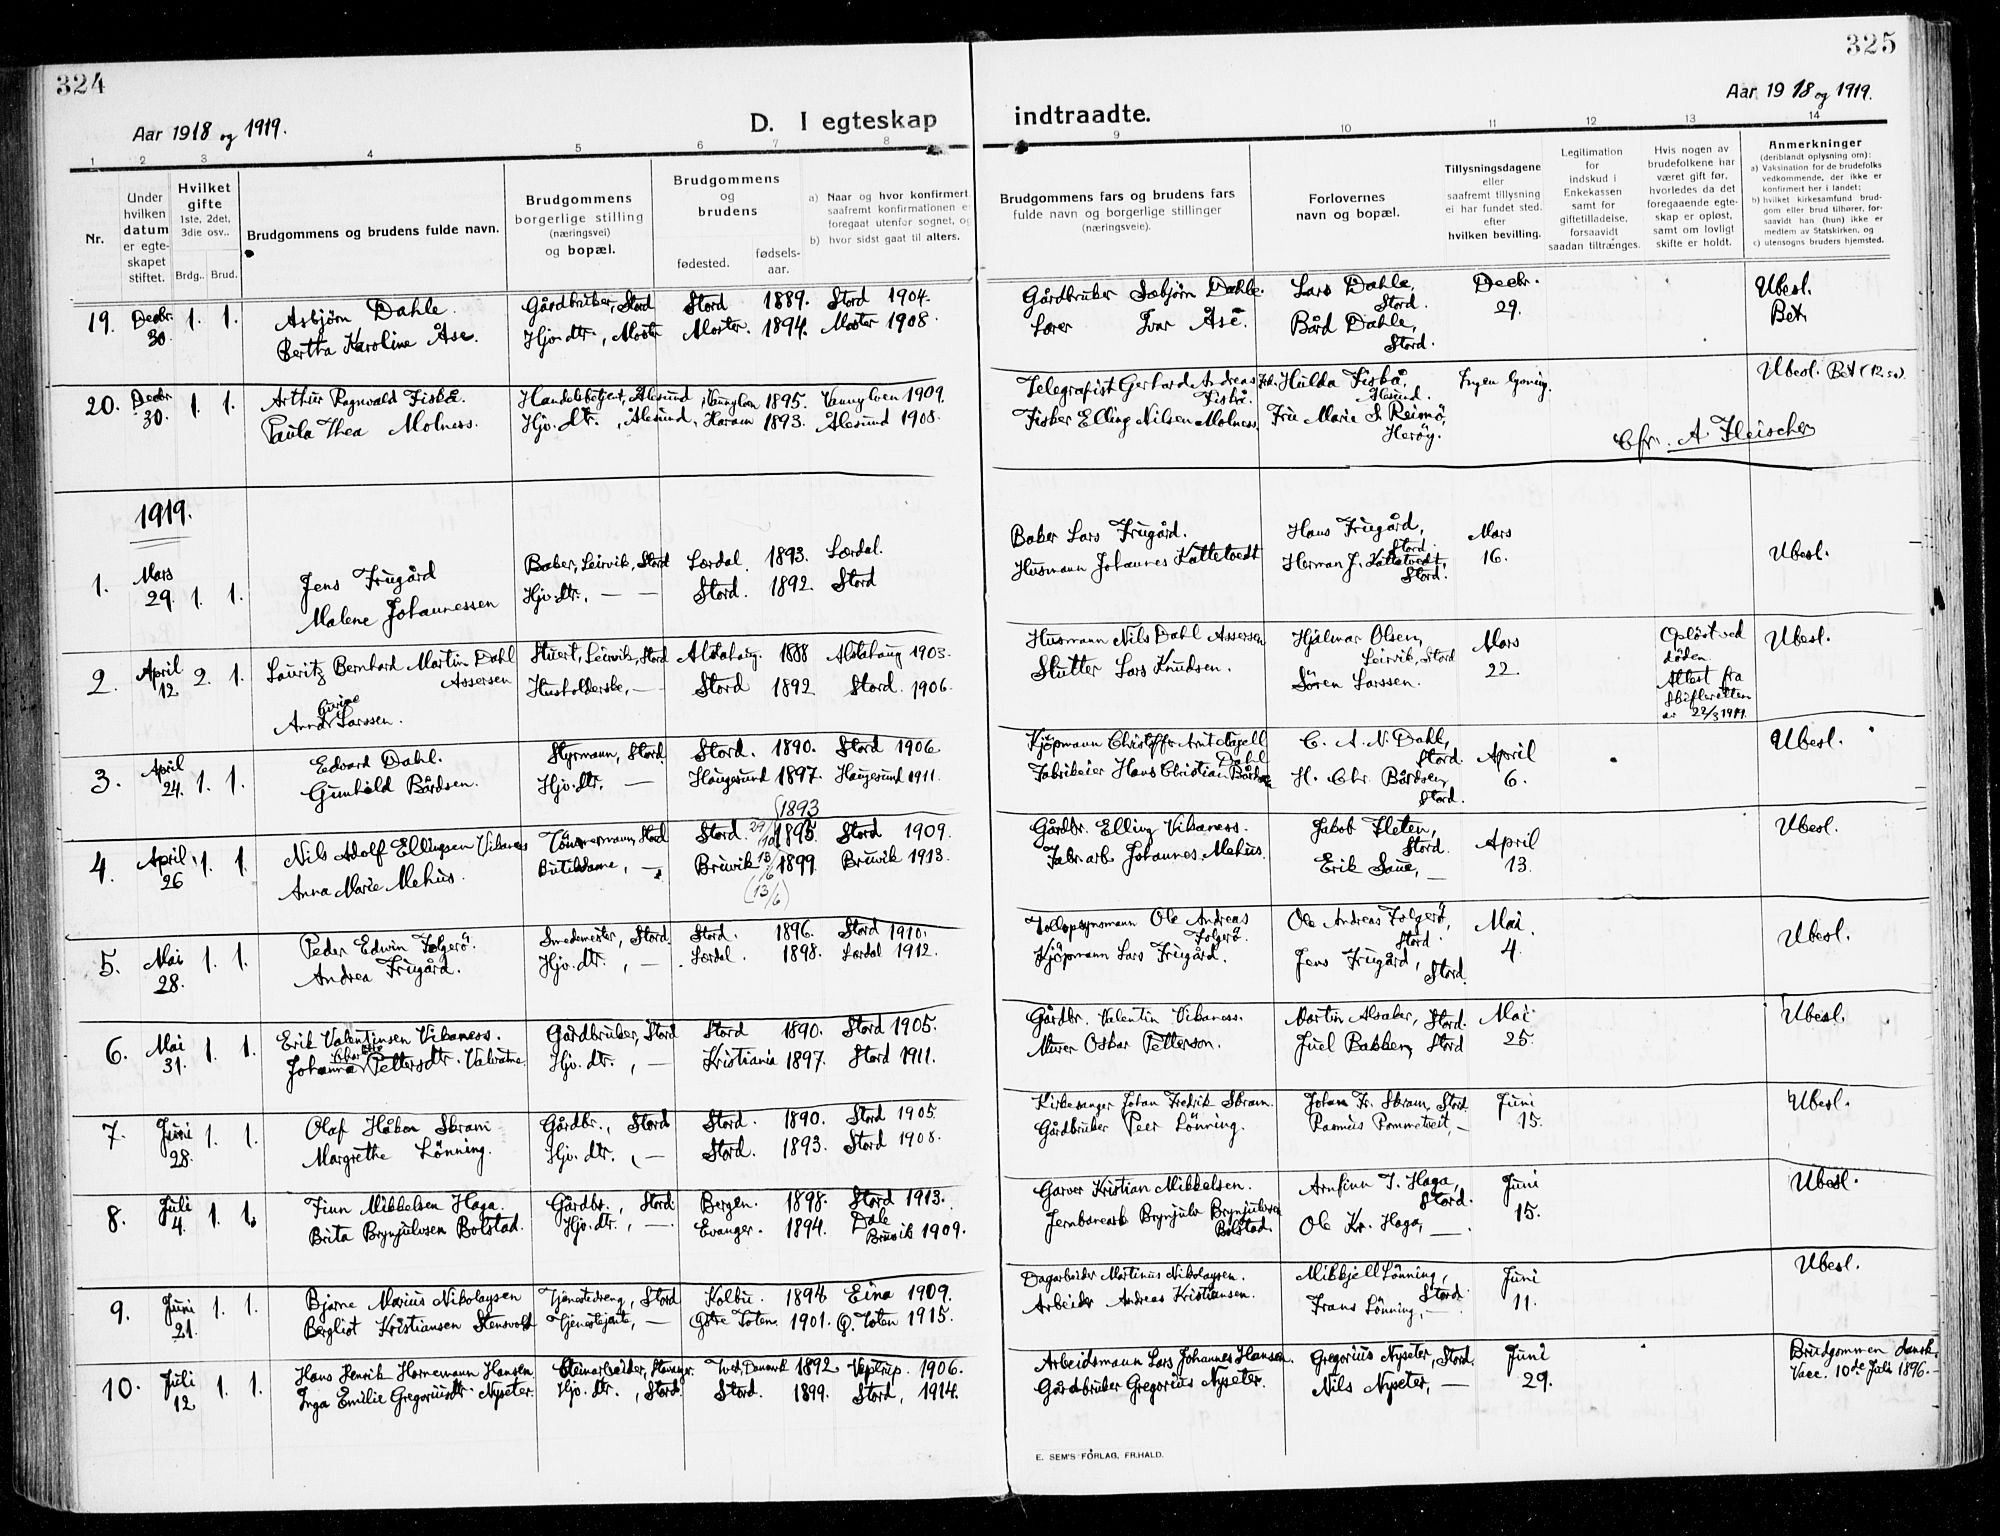 324
325
Aar 1918 og 1919.
D. I egteskap indtraadte.
Aar 1918 og 1919.
1 2 3 4 5 6 7 8 9 10 11 12 13 14
Nr.
Under hvilken datum er egteskapet stiftet.
Hvilket gifte 1ste, 2det, 3die osv..
Brdg.. Brud.
Brudgommens og brudens fulde navn.
Brudgommens borgerlige stilling (næringsvei) og bopæl.
Brudgommens og brudens
fødested. fødselsaar.
a) Naar og hvor konfirmert saafremt konfirmationen er foregaat utenfor sognet, og
b) hvor sidst gaat til alters.
Brudgommens fars og brudens fars fulde navn og borgerlige stillinger (næringsveie).
Forlovernes navn og bopæl.
Tillysningsdagene eller saafremt tillysning ei har fundet sted, efter hvilken bevilling.
Legitimation for indskud i Enkekassen samt for giftetilladelse, forsaavidt saadan tiltrænges.
Hvis nogen av brudefolkene har været gift før, hvorledes da det foregaaende egteskap er opløst, samt om lovligt skifte er holdt.
Anmerkninger
(deriblandt oplysning om):
a) Vaksination for de brudefolks vedkommende, der ikke er konfirmert her i landet;
b) hvilket kirkesamfund brudgom eller brud tilhører, forsaavidt han (hun) ikke er medlem av Statskirken, og
c) utensogns bruders hjemsted.
19. Decbr. 30. 1. 1. Asbjørn Dahle. Gårdbruker, Stord Stord 1889. Stord 1904. Gårdbruker Sæbjørn Dahle. Lars Dahle, Stord. Decbr. 29. Ubesl.
Bertha Karoline Åse. Hjv. dtr., Moster Moster. 1894. Moster 1908. Lærer Ivar Åse. Bård Dahle, Stord. Bet.
20. Decbr. 30. 1. 1. Arthur Ragnvald Fiskå. Handelsbetjent, Ålesund, Vannylven 1895. Vannylven 1909. Telegrafist Gerhard Andreas Fiskå. Frk. Hulda Fiskå, Ålesund. Ingen lysning. Ubesl. Bet. (12.50)
Paula Thea Molness. Hjv. dtr., Ålesund, Haram 1893. Ålesund 1908. Fisker Elling Nilsen Molness. Fru Marie S. Reismö, Heröy.
Cfr. A. Fleischer
1919.
1. Mars 29. 1. 1. Jens Frugård Baker, Leirvik, Stord Lærdal. 1893. Lærdal. Baker Lars Frugård. Hans Frugård, Stord. Mars 16. Ubesl.
Malene Johannessen Hjv. dtr., — — Stord. 1892. Stord Husmann Johannes Kattetvedt Herman J. Kattetvedt, Stord.
2. April 12. 2. 1. Lauritz Bernhard Martin Dahl Assersen Stuert, Leirvik, Stord Alstahaug. 1888 Alstahaug 1903. Husmann Nils Dahl Assersen Hjalmar Olsen, Leirvik, Stord Mars 22. Oplöst ved döden. Attest fra Skifteretten av 22/3 1919. Ubesl.
Anna Gurine Larssen. Husholderske, — Stord 1892 Stord. 1906. Slutter Lars Knudsen. Sören Larssen.
3. April 24. 1. 1. Edvard Dahl. Styrmann, Stord. Stord. 1890. Stord 1906. Kjöpmann Christoffer Arnt Nagell Dahl C. A. N. Dahl, Stord. April 6. Ubesl.
Gunhild Bårdsen. Hjv. dtr. — Haugesund 1897. Haugesund 1911. Fabrikeier Hans Christian Bårdsen H. Chr. Bårdsen, Stord.
4. April 26 1. 1. Nils Adolf Ellingsen Vikaness Tömmermann, Stord Stord. 29/10 (1893 1895. Stord 1909. Gårdbr. Elling Vikaness. Jakob Fleten, Stord. April 13. Ubesl.
Anna Marie Mehus. Butikdame, — Bruvik 13/6 1899. (13/6) Bruvik 1913. Fabr. arb. Johannes Mehus. Erik Saue, —
5. Mai 28. 1. 1. Peder Edwin Folgerö. Smedemester, Stord. Stord. 1896. Stord 1910. Tollopsynsmann Ole Andreas Folgerö. Ole Andreas Folgerö, Stord. Mai. 4. Ubesl.
Andrea Frugård. Hjv. dtr., — Lærdal. 1898. Lærdal 1912. Kjöpmann Lars Frugård. Jens Frugård, Stord.
6. Mai 31. 1. 1. Erik Valentinsen Vikaness. Gårdbruker, Stord Stord 1890. Stord 1905. Gårdbr. Valentin Vikaness. Martin Alsaker, Stord. Mai. 25. Ubesl.
Johanna Pettersdtr. Valvatne. Hjv. dtr., — Kristiania 1897. Stord 1911. Murer Oskar Petterson. Juel Bakken, Stord
7. Juni 28. 1. 1. Olaf Håkon Skram Gårdbr., Stord Stord. 1890. Stord 1905. Kirkesanger Johan Fredrik Skram. Johan Fr. Skram, Stord Juni 15. Ubesl.
Margrethe Lönning. Hjv. dtr., — Stord. 1893. Stord 1908. Gårdbruker Peer Lönning. Rasmus Rommetveit, —
8. Juli 4. 1. 1. Finn Mikkelsen Haga. Gårdbr., Stord. Bergen. 1898. Stord 1913. Garver Kristian Mikkelsen. Arnfinn T. Haga, Stord. Juni 15. Ubesl.
Brita Brynjulvsen Bolstad. Hjv. dtr., — Evanger. 1894. Dale Bruvik 1909. Jernbanearb. Brynjulv Brynjulvsen Bolstad. Ole Kr. Haga, —
9. Juni 21. 1. 1. Bjarne Marius Nikolaysen Tjenestedreng, Stord Kolbu. 1894 Eina 1909. Dagarbeider Martinus Nikolaysen. Mikkjell Lönning, Stord. Juni 11. Ubesl.
Bergliot Kristiansen Stensvold Tjenestejente, — Östre Toten. 1901. Ö. Toten 1915. Arbeider Andreas Kristiansen. Frans Lönning, —
10. Juli 12 1. 1. Hans Henrik Hornemann Hansen Steinarbeider, Stavanger. Tved, Danmark 1892. Vejstrup. 1906. Arbeidsmann Lars Johannes Hansen. Gregorius Nyseter, Stord. Juni 29. Brudgommen dansk. Vacc. 10de Juli 1896.
Inga Emilie Gregoriusdtr. Nyseter. Hjv. dtr., Stord. Stord. 1899. Stord, 1914. Gårdbruker Gregorius Nyseter. Nils Nyseter, —
E. SEM'S FORLAG, FR.HALD.